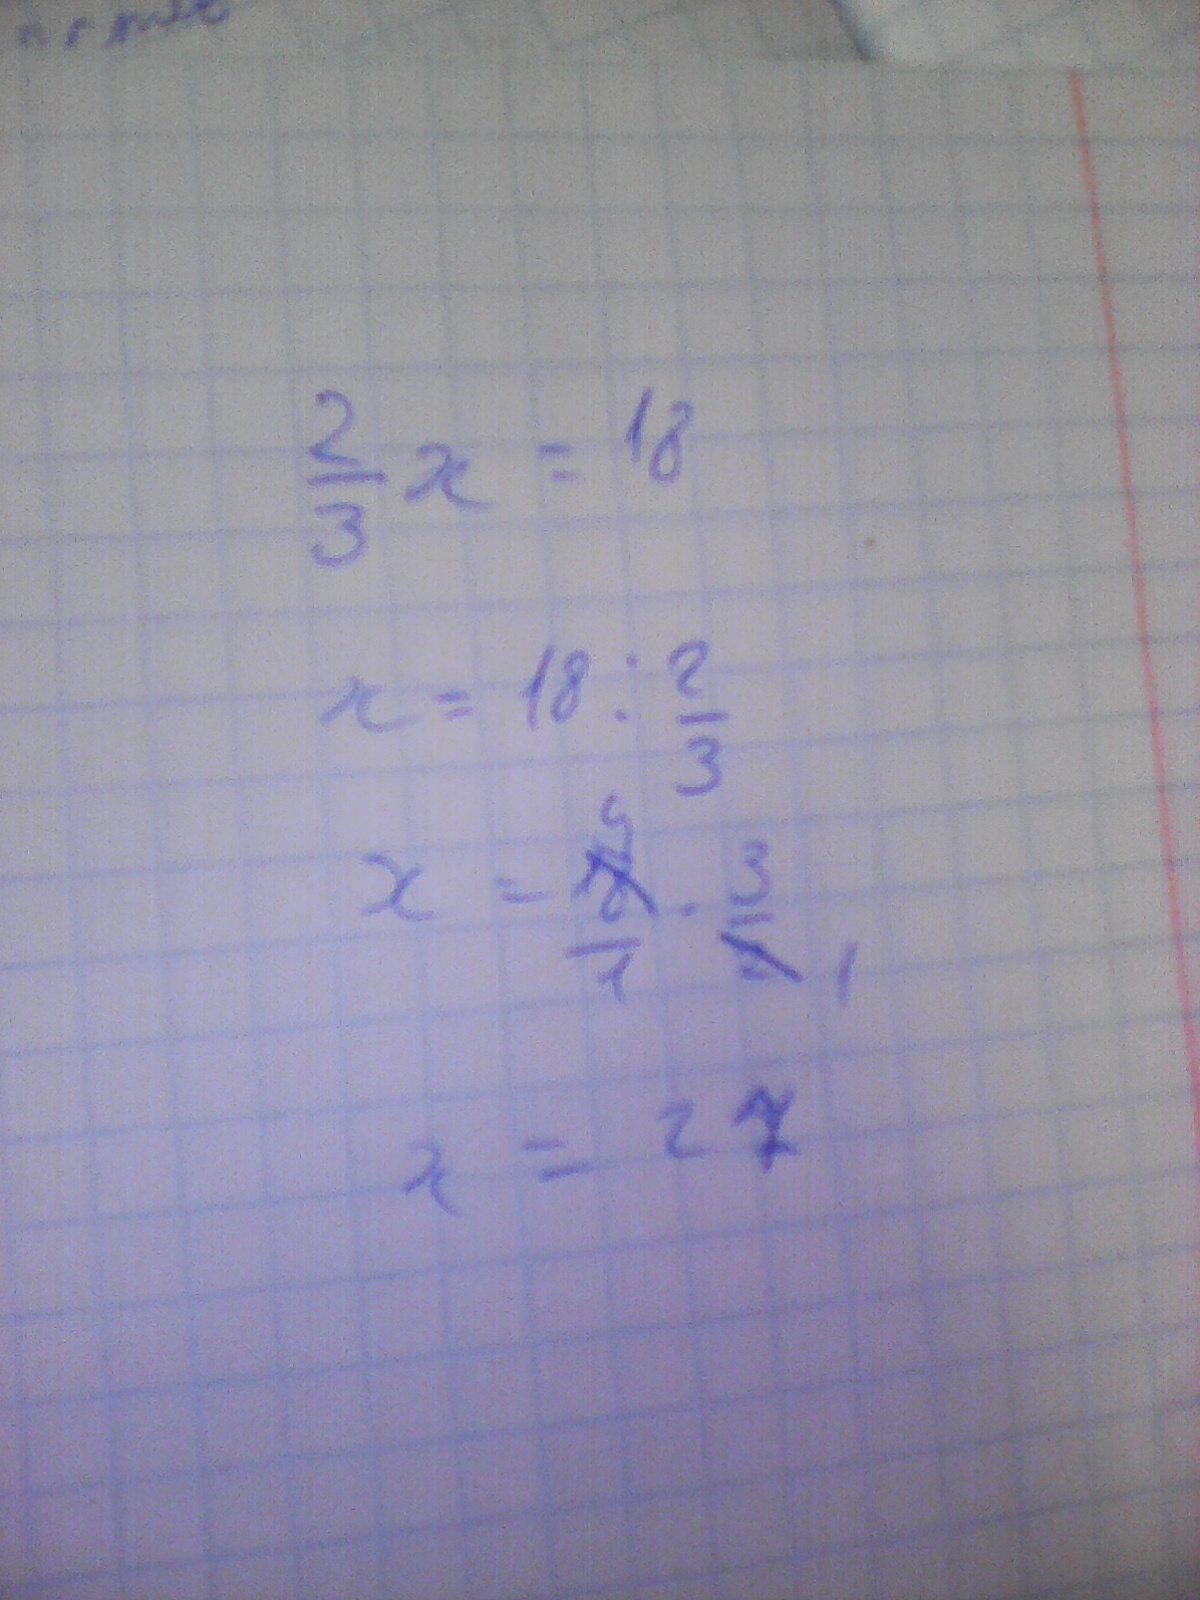 2/3 x = 18
x = 18 : 2/3
x = 18/1 · 3/2 9 1
x = 27